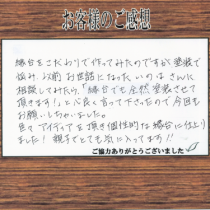 お客様のご感想
縁台をこだわりで作ってみたのですが塗装で
悩み、以前お世話になった いのは さんに
相談してみたら、「縁台でも全然塗装させて
頂きます！」と心良く言って下さったので今回も
お願いしちゃいました。
色々アイディアを頂き個性的な縁台に仕上り
ました！親子でとても気に入ってます！！
ご協力ありがとうございました